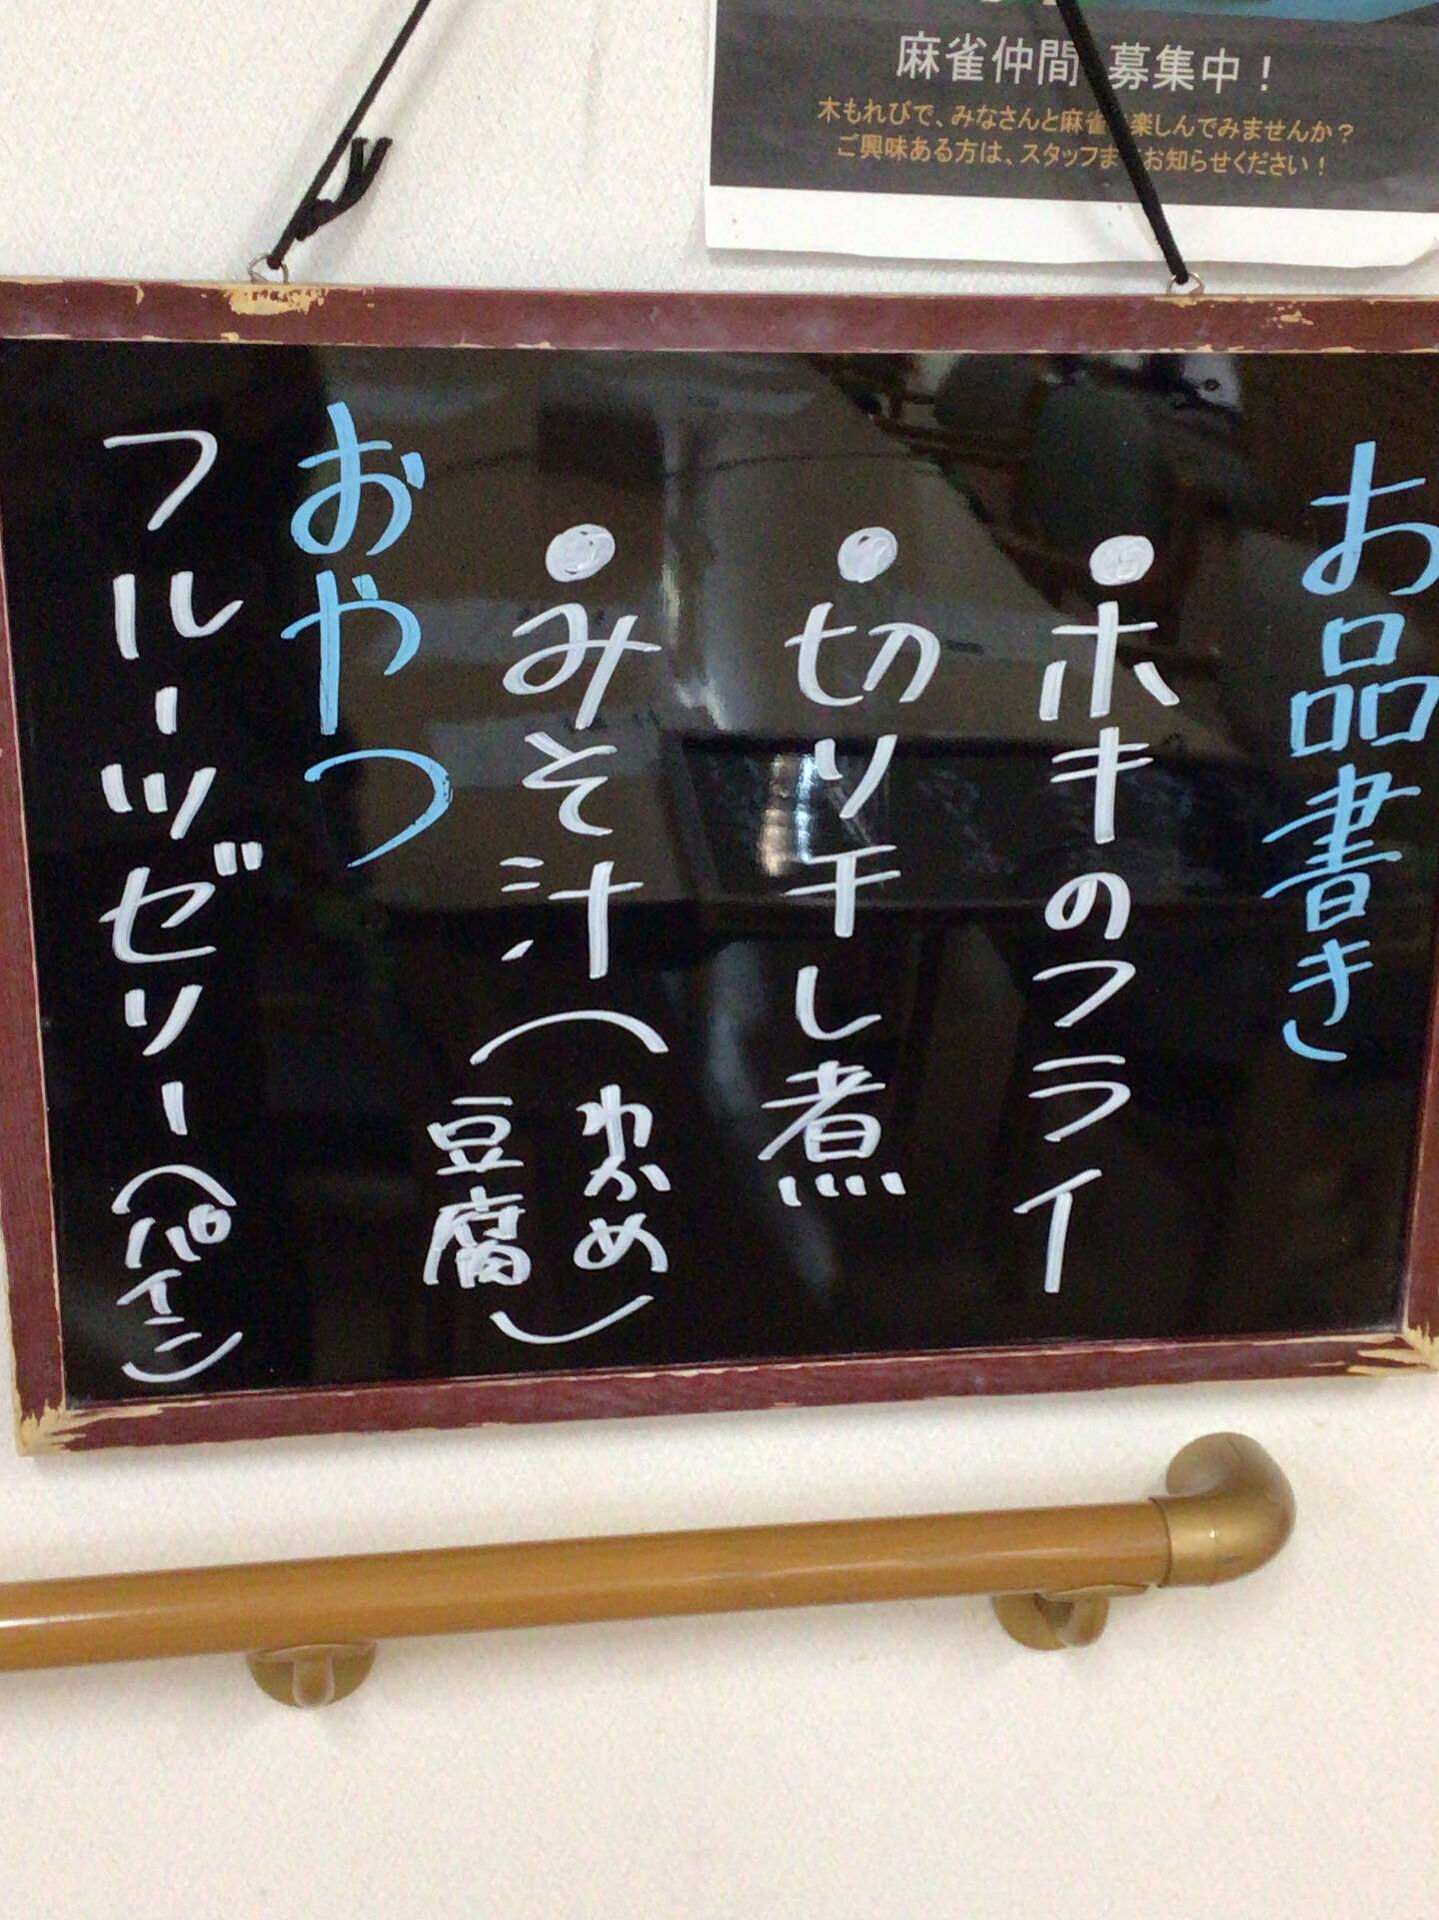 麻雀仲間 募集中！
木もれびで、みなさんと麻雀 楽しんでみませんか？
ご興味ある方は、スタッフま お知らせください！
お品書き
・ホキのフライ
・切り干し煮
・みそ汁（わかめ
豆腐）
おやつ
フルーツゼリー（パイン）